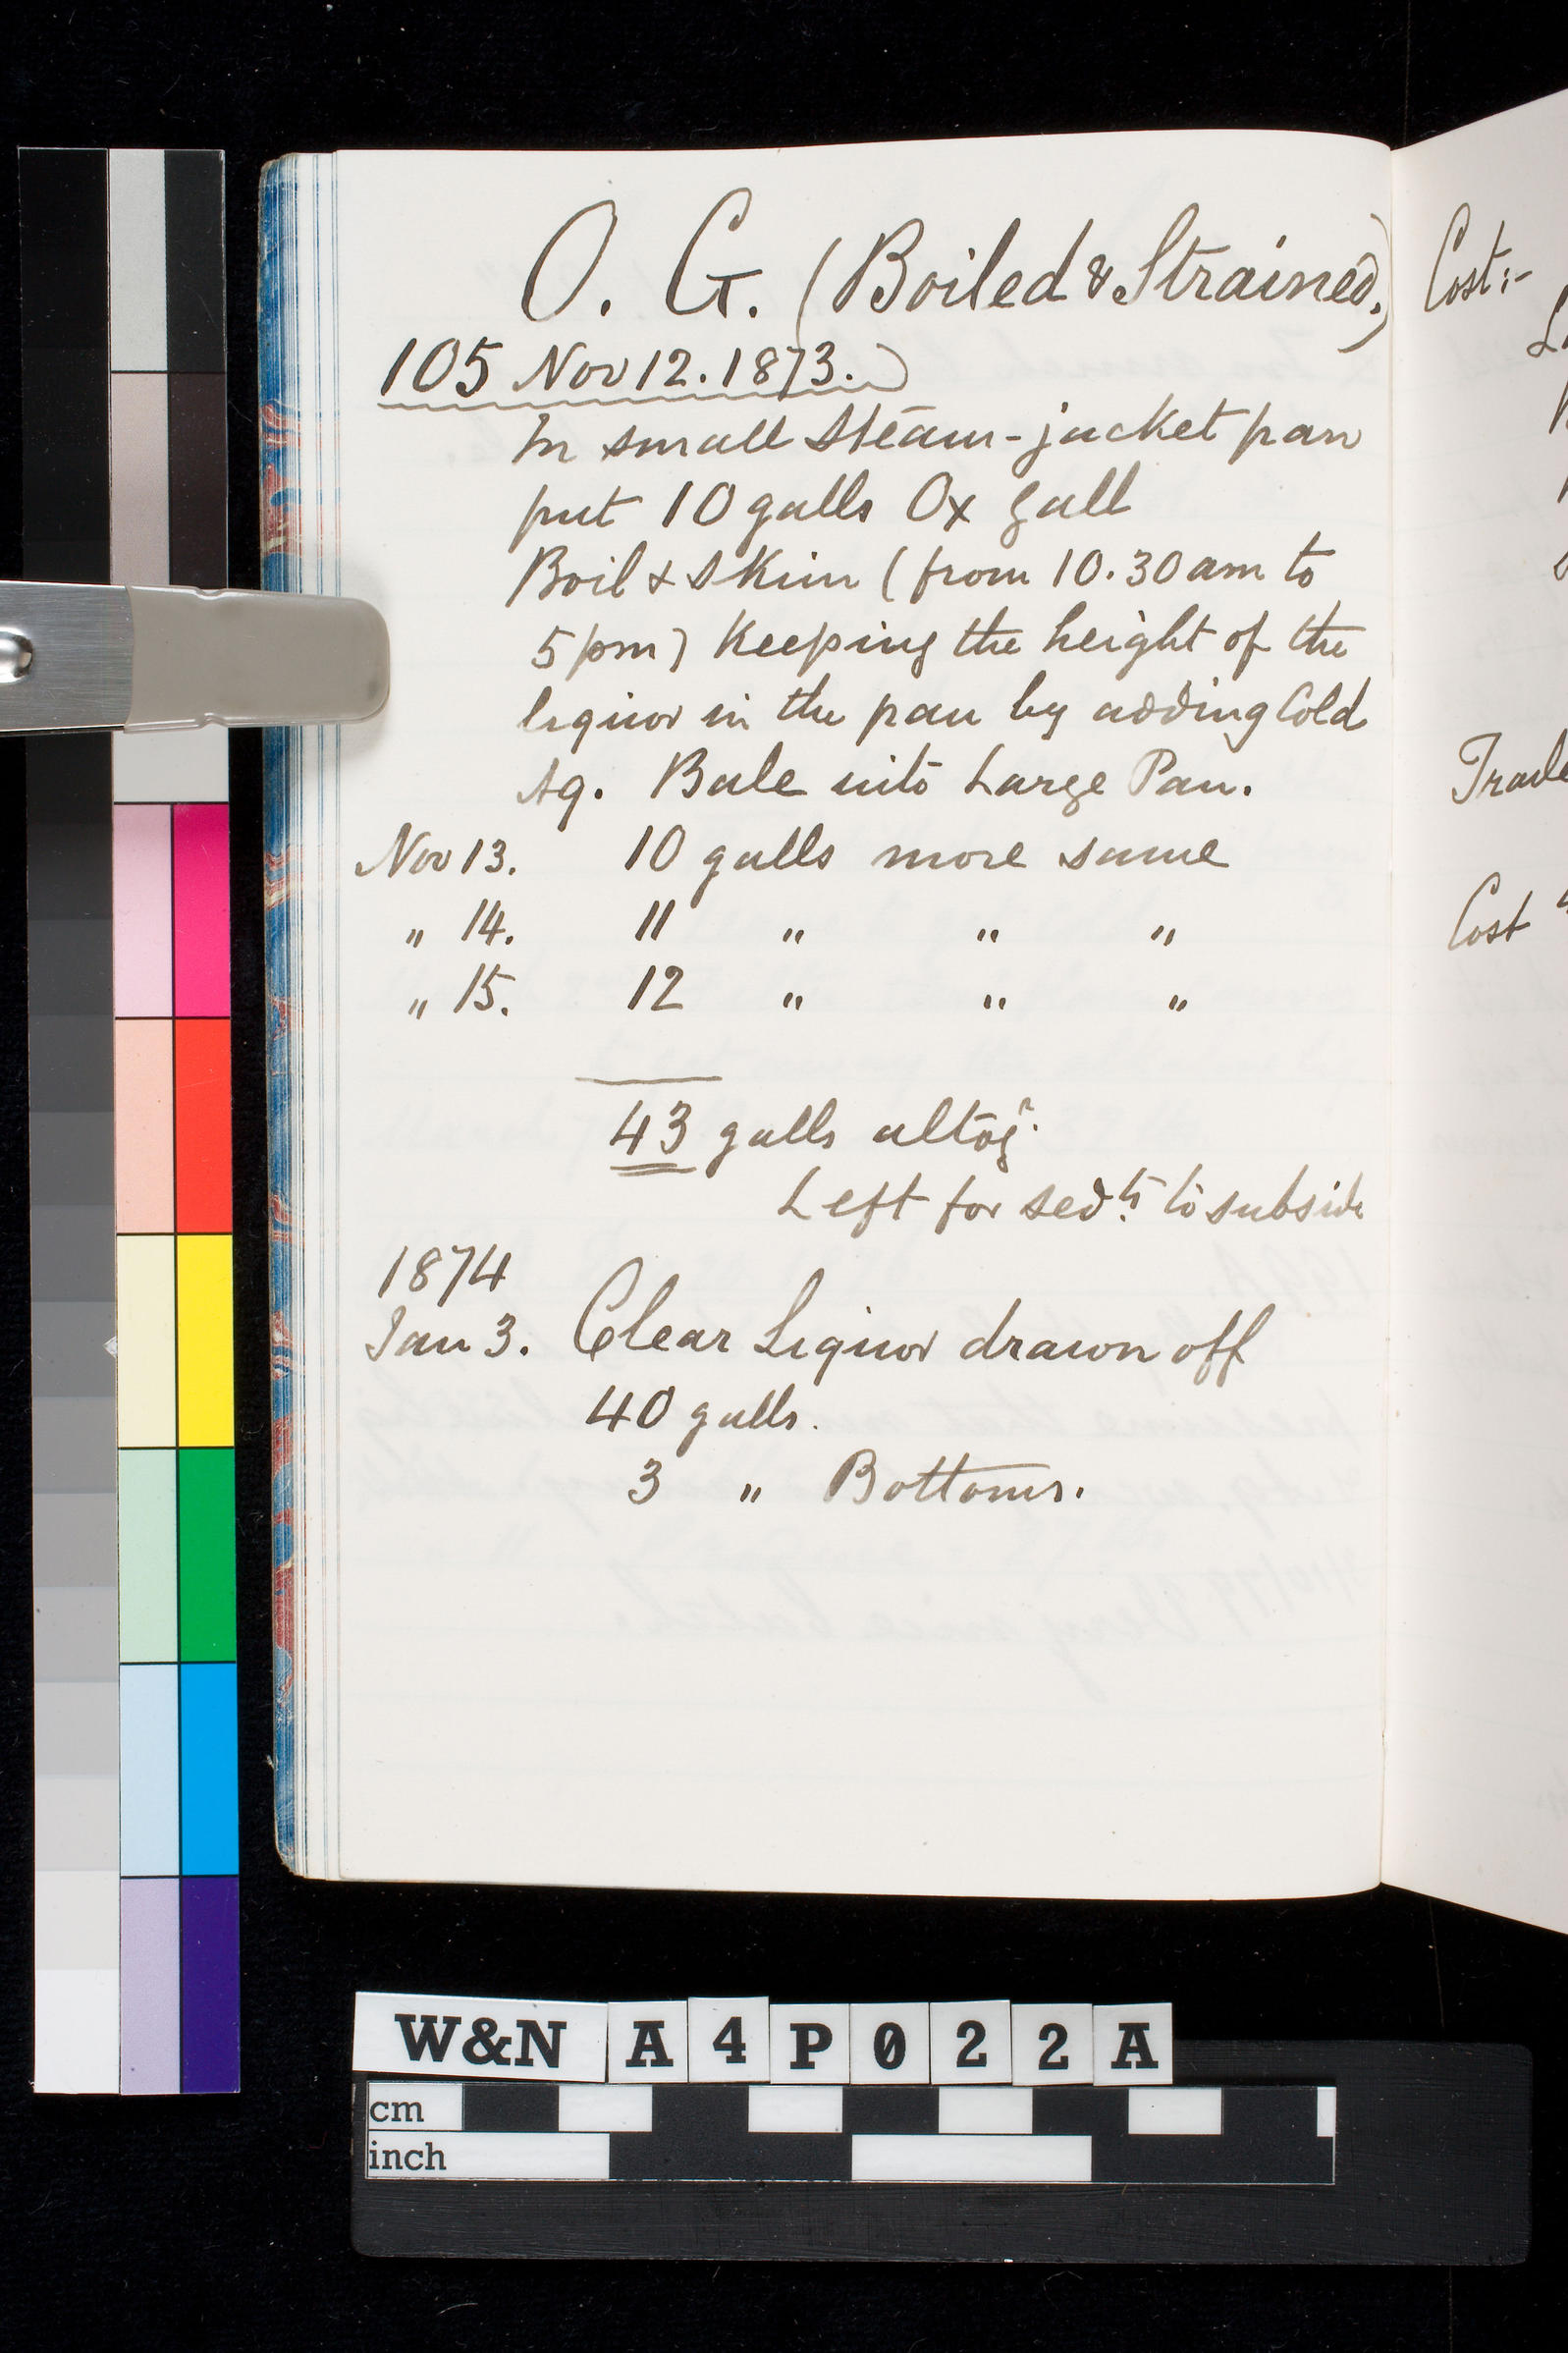 O. G. (Boiled & Strained.)
105 Nov 12. 1873.
In small steam-jacket pan
put 10 galls Ox gall
Boil & skim (from 10.30 am to
5 pm) keeping the height of the
liquor in the pan by adding Cold
Aq. Bale into Large Pan.
Nov 13. 10 galls more same
" 14. 11 " " "
" 15. 12 " " "
43 galls altogr.
Left for sedts. to subside
1874
Jan 3. Clear Liquor drawn off
40 galls.
3 " Bottoms.
Cost:-
Cost
W&N A4P022A
cm
inch